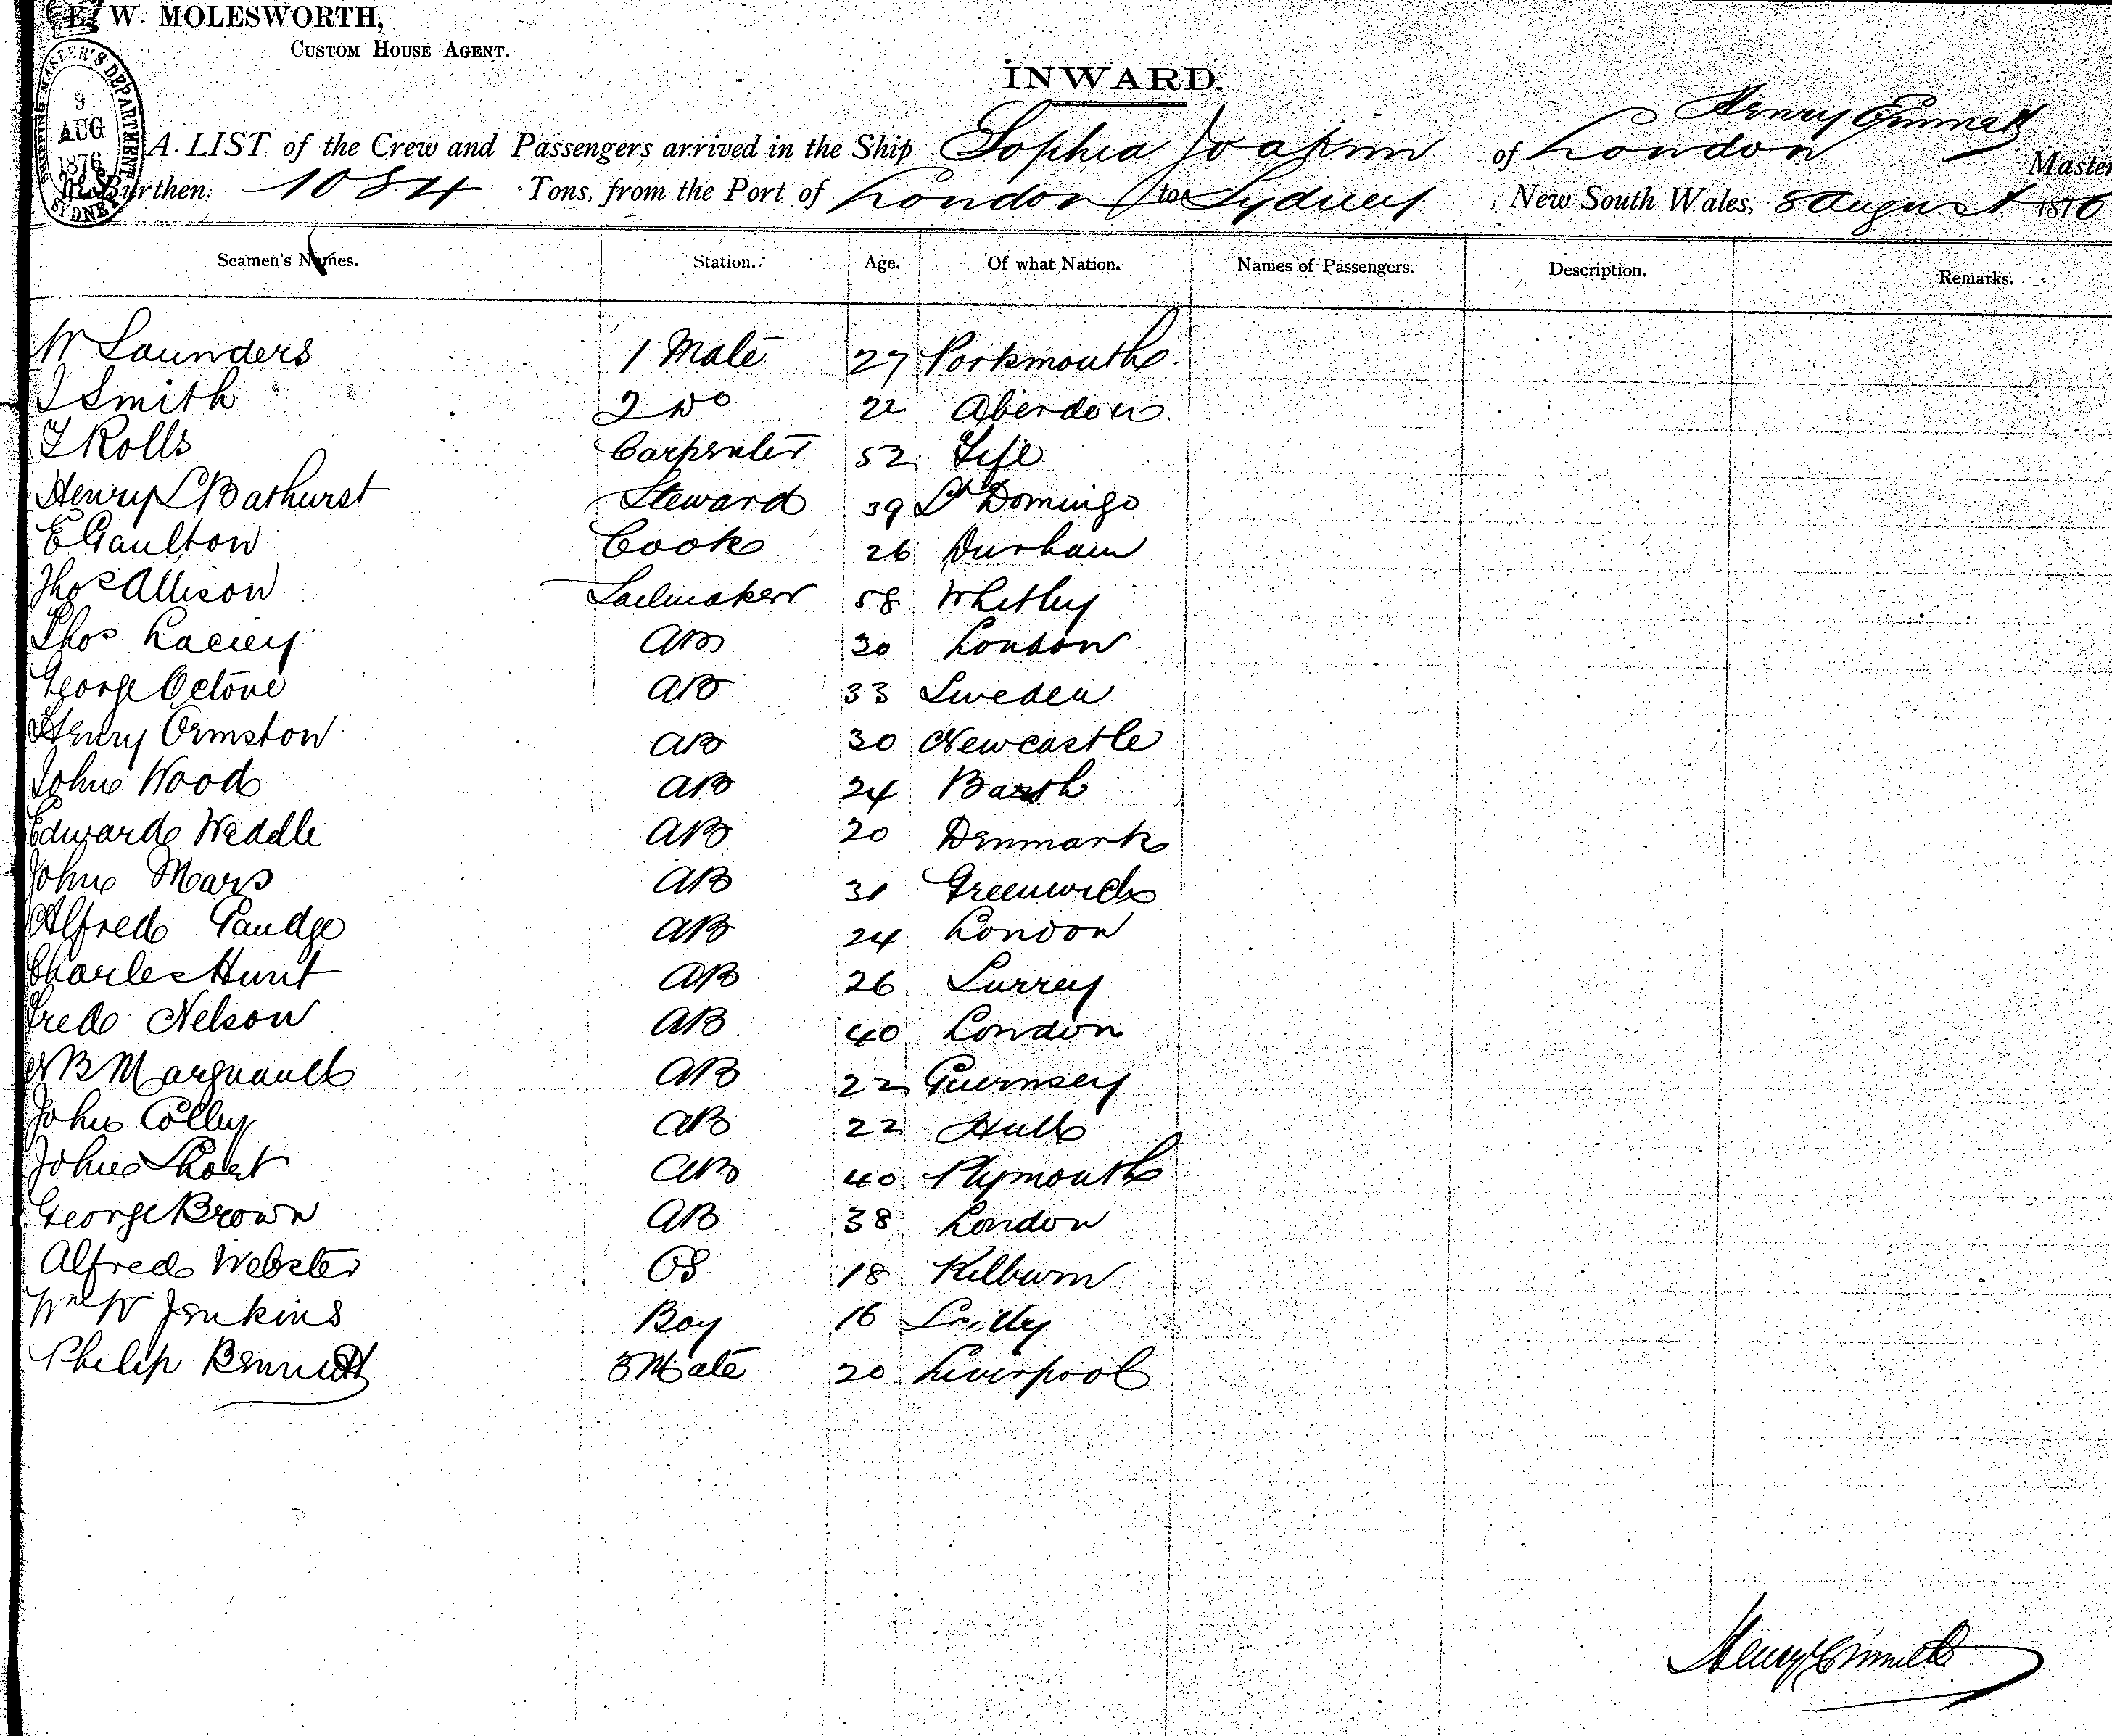 E. W. MOLESWORTH,
CUSTOM HOUSE AGENT.
SHIPPING MASTER'S DEPARTMENT
9
AUG
1876
SYDNEY
INWARD.
Henry Emmett
A LIST of the Crew and Passengers arrived in the Ship Sophia Joakim of London Master
Burthen 1084 Tons, from the Port of London to Sydney New South Wales, 8 August 1876
Seamen's Names. Station. Age. Of what Nation. Names of Passengers. Description. Remarks.
W Saunders 1 Mate 27 Portsmouth
J Smith 2 Do 22 Aberdeen
T Rolls Carpenter 52 Fife
Henry L Bathurst Steward 39 St Domingo
E Gaulton Cook 26 Durham
Thos Allison Sailmaker 58 Whitby
Thos Lacey AB 30 London
George Octove AB 33 Sweden
Henry Ormston AB 30 Newcastle
John Wood AB 24
Edward Weddle AB 20 Denmark
John Mars AB 31 Greenwich
Alfred Gaudge AB 24 London
Charles Hunt AB 26 Surrey
Fred Nelson AB 40 London
B Marquand AB 22 Guernsey
John Colley AB 22 Hull
John Short AB 40 Plymouth
George Brown AB 38 London
Alfred Webster OS 18 Kilburn
Wm W Jenkins Boy 16 Scilly
Philip Bennett 3 Mate 20 Liverpool
Henry Emmett